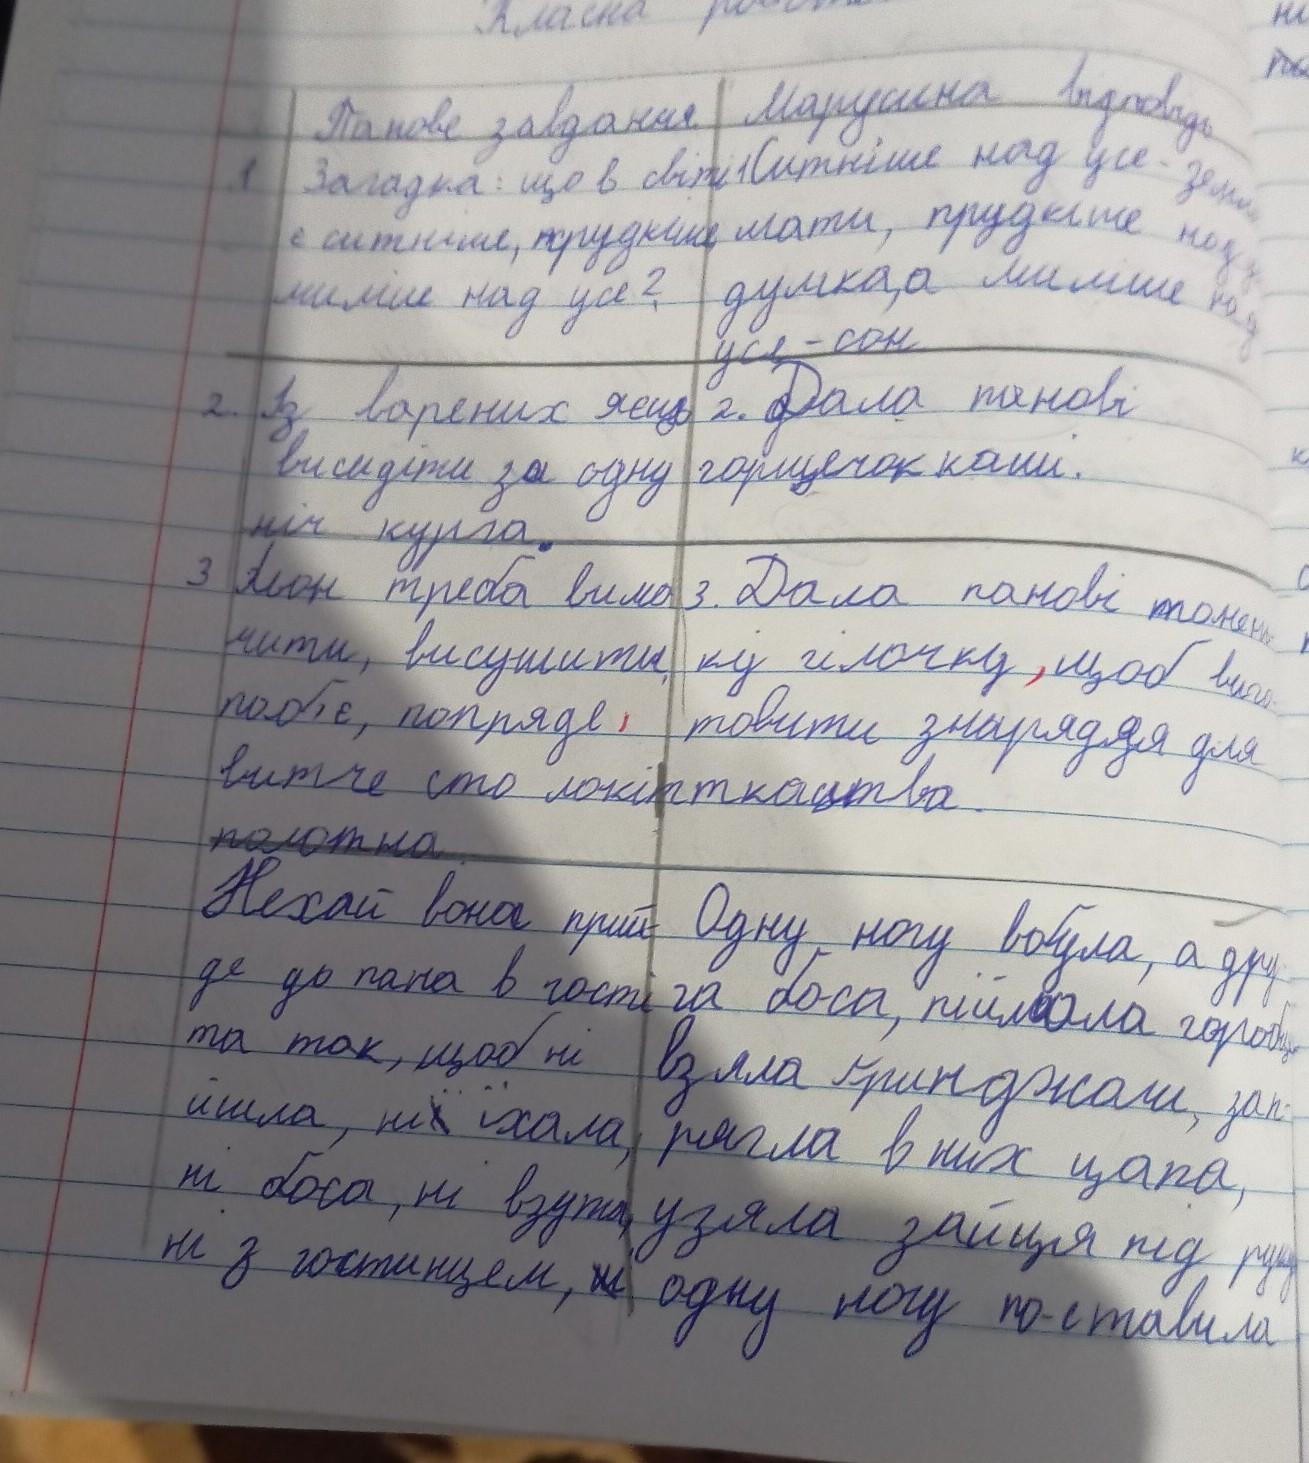 Класна робота
Панове завдання
1 Загадка: що в світі
є ситніше, прудкіше,
миліше над усе?
2. Із варених яєць
висидіти за одну
ніч курча.
3 Льон треба вимо
чити, висушити,
поб'є, попряде,
витче сто локіт
полотна.
Нехай вона прий
де до пана в гості
та так, щоб ні
йшла, ні їхала,
ні боса, ні взута,
ні з гостинцем,
Марусина відповідь
1 Ситніше над усе - земля
мати, прудкіше над у
думка, а миліше над
усе - сон
2. Дала панові
горщечок каші.
3. Дала панові тонень
ку гілочку, щоб виго-
товити знаряддя для
ткацтва.
Одну ногу вобула, а дру-
га боса, піймала горобця
взяла ґринджоли, зап-
рягла в них цапа,
узяла зайця під руку
одну ногу по-ставила